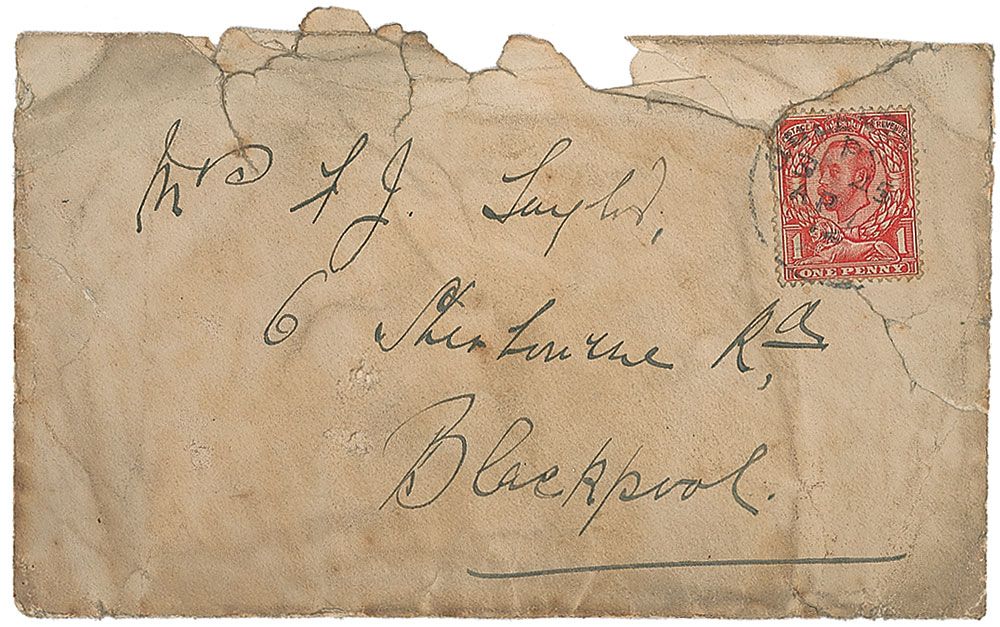 Mrs F J. Taylor,
6 Sherbourne Rd,
Blackpool.
POSTAGE REVENUE
1 1
ONE PENNY